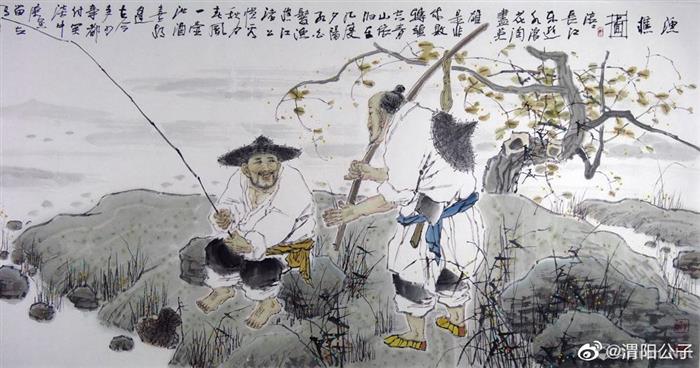 漁樵圖
滚滚
长江
东逝
水浪
花淘
盡英
雄
是非
成敗
轉頭
空青
山依
旧在
几度
夕陽
红白
髮漁
樵江
渚上
惯看
秋月
春風
一壶
浊酒
喜相
逢
古今
多少
事都
付笑
谈中
@渭阳公子